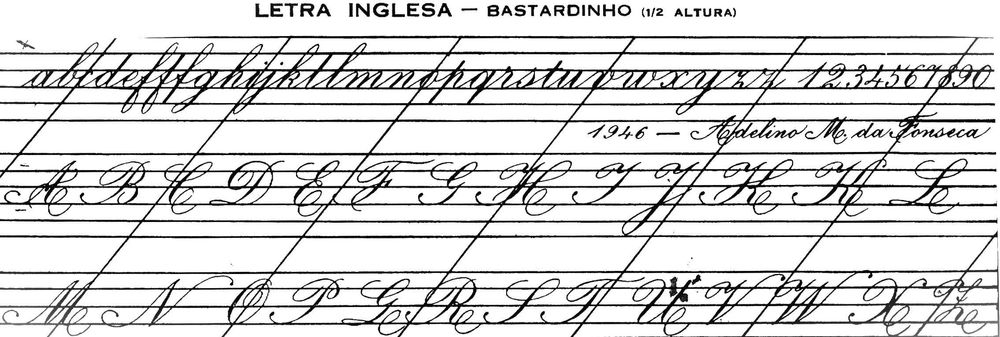 LETRA INGLESA — BASTARDINHO (1/2 ALTURA)
abcdefffghijklllmnopqrstuvwxyzz 1234567890
1946 — Adelino M. da Fonseca
A B C D E F G H I J K K L
M N O P Q R S T U V W X Z